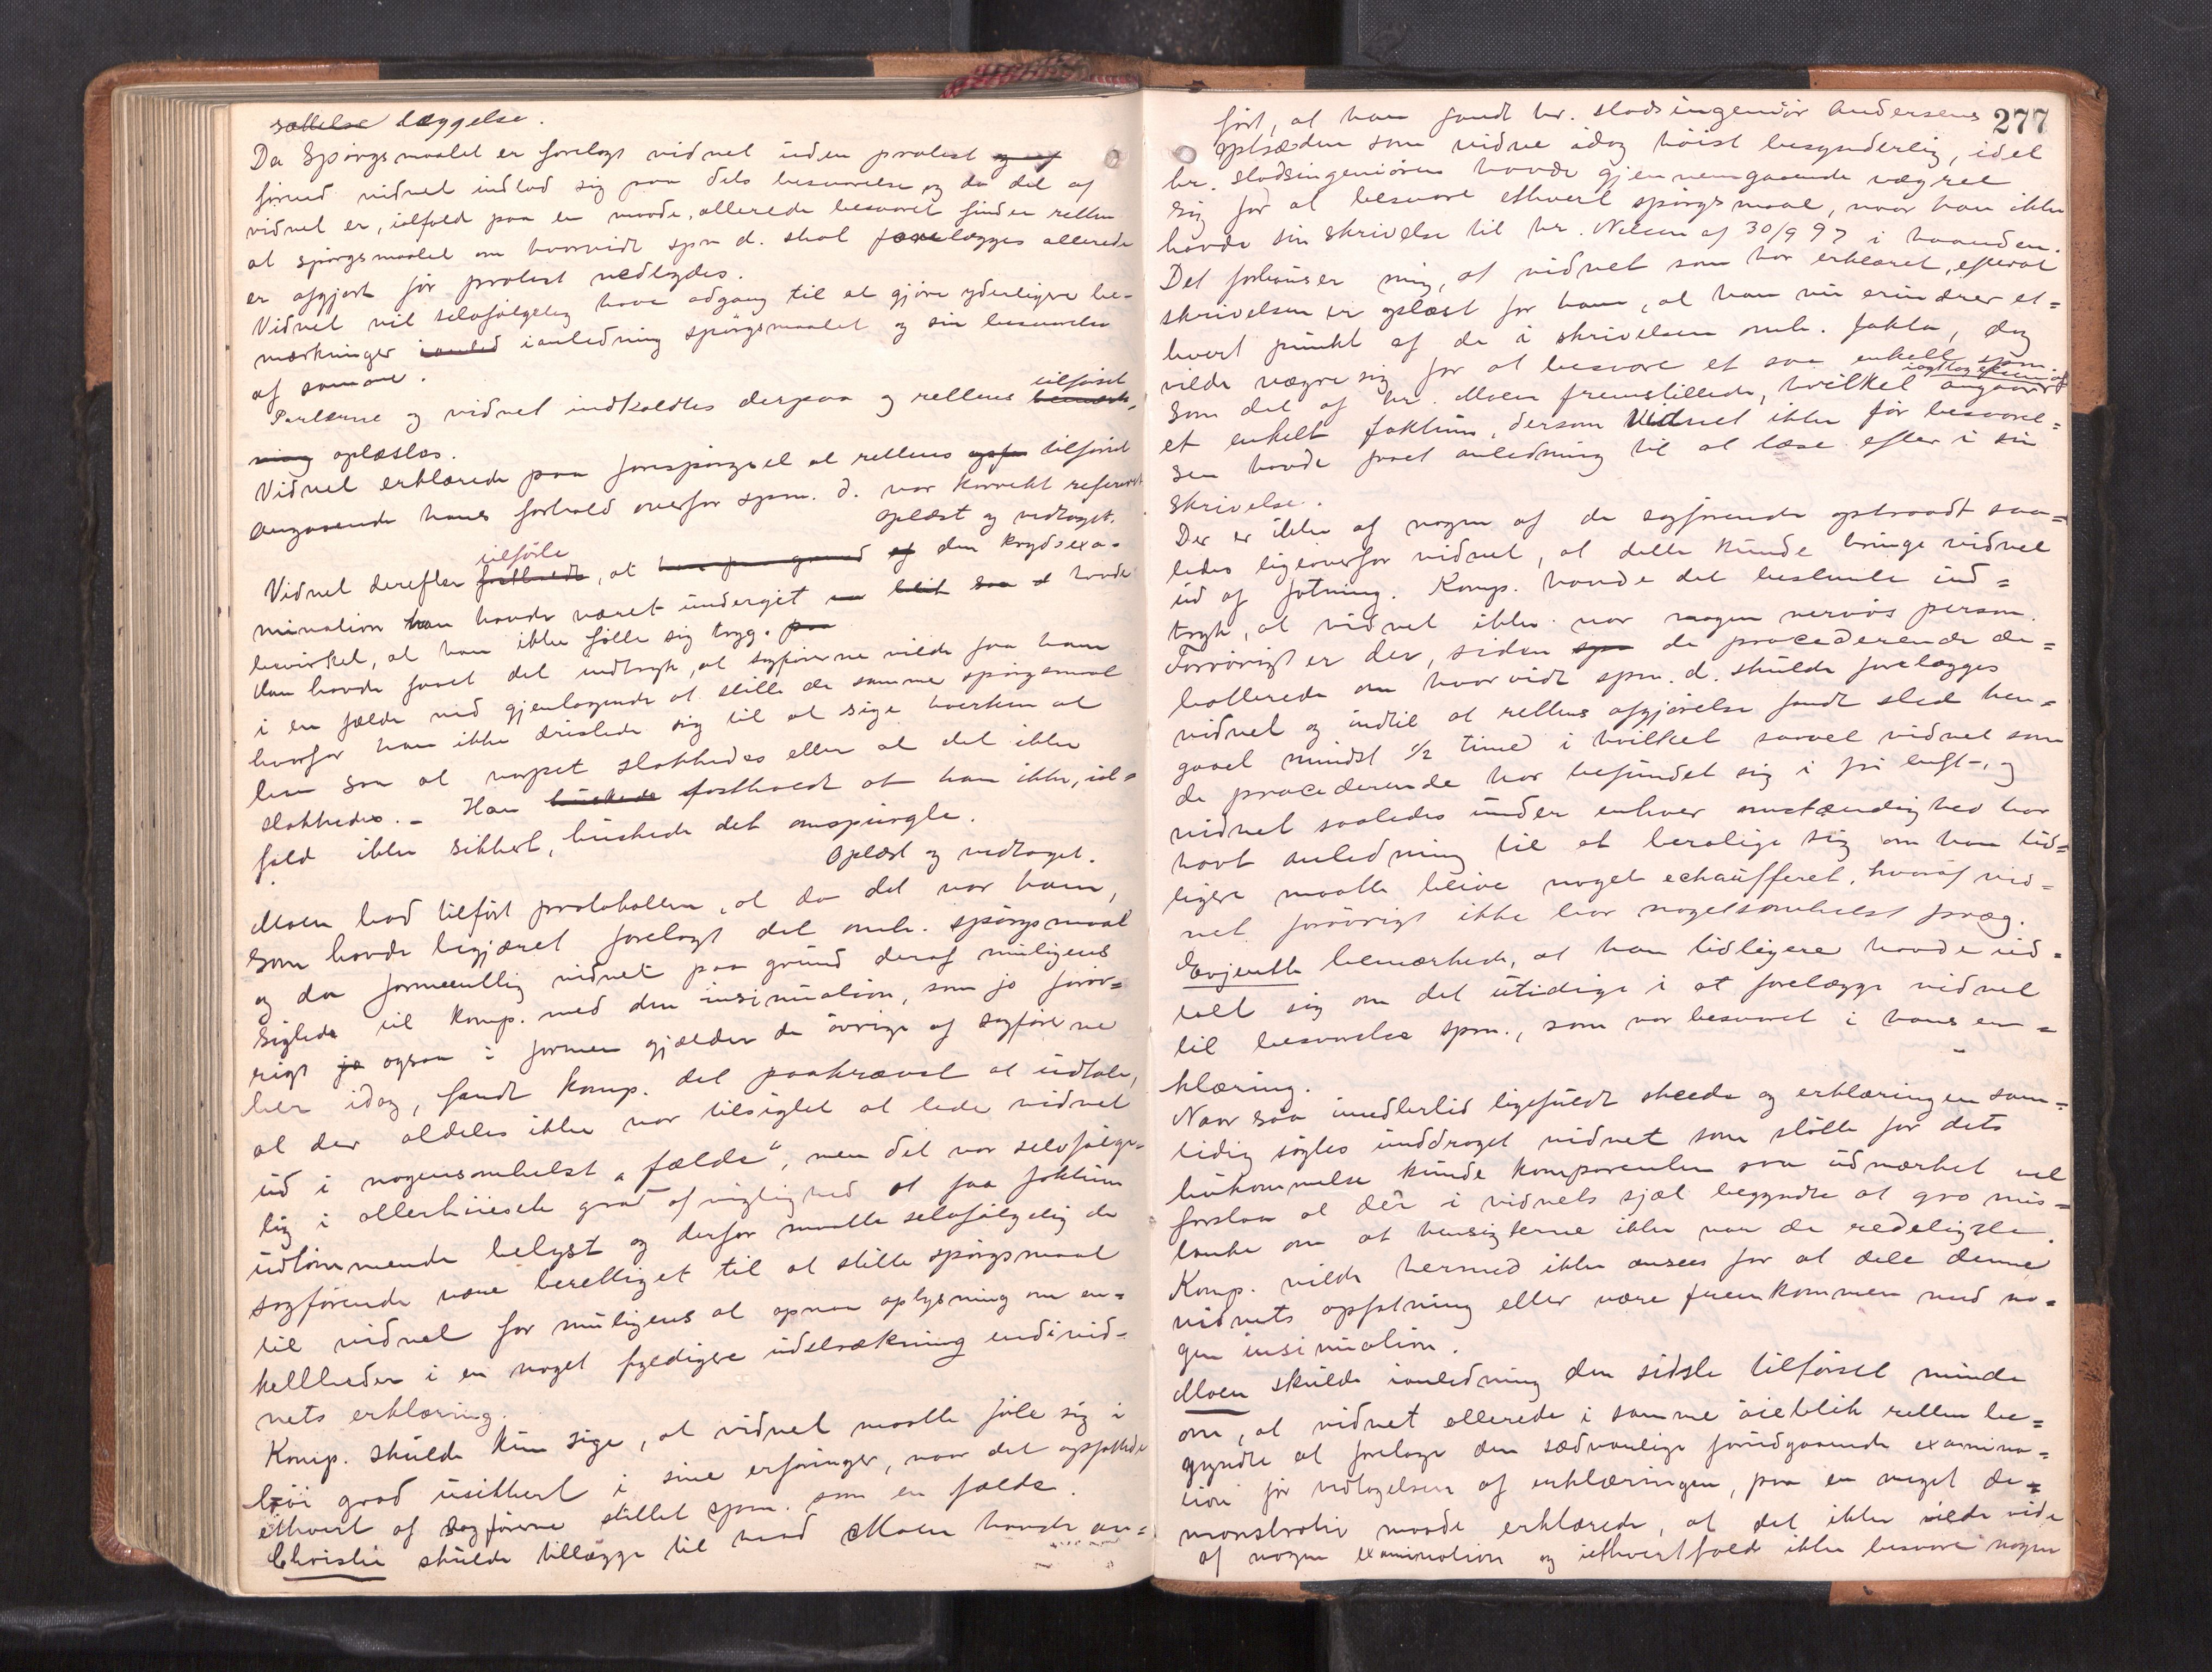 sættelse læggelse.
Da Spörgsmaalet er forelagt vidnet uden protest og af
forinden vidnet indlod sig paa dets besvarelse og da det af
vidnet er, ialfald paa en maade, allerede besvaret finder retten
at spörgsmaalet om hvorvidt spm d. skal forelægges allerede
er afgjort för protest nedlagdes.
Vidnet vil selvfölgelig have adgang til at gjöre yderligere be-
mærkninger ianled ianledning spörgsmaalet og sin besvarelse
af samme.
Parterne og vidnet indkaldtes derpaa og rettens bemærk- tilförsel
ning oplæstes.
Vidnet erklærede paa forespörgsel at rettens opfa tilförsel
angaaende hans forhold overfor spm. d. var korrekt refereret
Oplæst og vedtaget.
Vidnet derefter fortsatte tilförte, at han paa grund af den krydsexa-
mination han havde været underget en blit saa d havde
bevirket, at han ikke fölte sig tryg. paa
Han havde faaet det indtryk, at sagförerne vilde faa ham
i en fælde ved gjentagende at stille de samme spörgsmaal
hvorfor han ikke dristede sig til at sige hverken at
han saa at varpet slakkedes eller at det ikke
slakkedes. - Han huskede fastholdt at han ikke, ial-
fald ikke sikkert, huskede det omspurgte.
Oplæst og vedtaget.
Moen bad tilfört protokollen, at da det var ham,
som havde begjæret forelagt det omh. spörgsmaal
og da formentlig vidnet paa grund deraf muligens
sigtede til komp. med den insinuation, som jo foröv-
rigt jo ogsaa i formen gjælder de övrige af sagförerne
her idag, fandt komp. det paakrævet at udtale,
at der aldeles ikke var tilsigtet at lede vidnet
ud i nogensomhelst "fælde", men det var selvfölge-
lig i allerhöieste grad af vigtighed at faa faktum
udtömmende belyst og derfor maatte selvfölgelig de
sagförende være berettiget til at stille spörgsmaal
til vidnet for muligens at opnaa oplysning om en-
keltheder i en noget fyldigere udstrækning end vid-
nets erklæring.
Komp. skulde kun sige, at vidnet maatte föle sig i
höi grad usikkert i sine erfaringer, naar det opfattede
ethvert af sagförerne stillet spm. som en fælde.
Christie skulde tillægge til hvad Moen havde an-
277
fört, at han fandt hr. stadsingeniör Andersens
optræden som vidne idag höist besynderlig, idet
hr. stadsingeniören havde gjennemgaaende vægret
sig for at besvare ethvert spörgsmaal, naar han ikke
havde sin skrivelse til hr. Nelsen af 30/9 97 i haanden.
Det forbauser mig, at vidnet som har erklæret, efterat
skrivelsen er oplæst for ham, at han nu erindrer et-
hvert punkt af de i skrivelsen omh. fakta, dog
vilde vægre sig for at besvare et saa enkelt spm.
som det af hr. Moen fremstillede, hvilket angaar iagttagelsen af
et enkelt faktum, dersom Vidnet ikke för besvarel-
sen havde faaet anledning til at læse efter i sin
skrivelse.
Der er ikke af nogen af de sagförende optraadt saa-
ledes ligeoverfor vidnet, at dette kunde bringe vidnet
ud af fatning. Komp. havde det bestemte ind-
tryk, at vidnet ikke var nogen nervös person.
Forövrigt er der, siden spm de procederende de-
batterede om hvorvidt spm. d. skulde forelægges
vidnet og indtil at rettens afgjörelse fandt sted hen-
gaaet mindst 1/2 time i hvilket saavel vidnet som
de procederende har befundet sig i fri luft-, og
vidnet saaledes under enhver omstændighed har
havt anledning til at berolige sig om han tid-
ligere maatte blive noget echaufferet, hvoraf vid-
net forövrigt ikke bar nogetsomhelst præg.
Evjenth bemærkede, at han tidligere havde ud-
talt sig om det utidige i at forelægge vidnet
til besvarelse spm., som var besvaret i hans er-
klæring.
Naar saa imidlertid ligefuldt skeede og erklæringen sam-
tidig sögtes unddraget vidnet som stötte for dets
hukommelse kunde komparenten saa udmærket vel
forstaa at der i vidnets sjæl begyndte at gro mis-
tanke om at hensigterne ikke var de redeligste.
Komp. vilde hermed ikke ansees for at dele denne
vidnets opfatning eller være fremkommen med no-
gen insinuation.
Moen skulde ianledning den sidste tilförsel minde
om, at vidnet allerede i samme öieblik retten be-
gyndte at foretage den sædvanlige forudgaaende examina-
tion för vedtagelsen af erklæringen, paa en meget de-
monstrativ maade erklærede, at det ikke vilde vide
af nogen examination og iethvertfald ikke besvare nogen